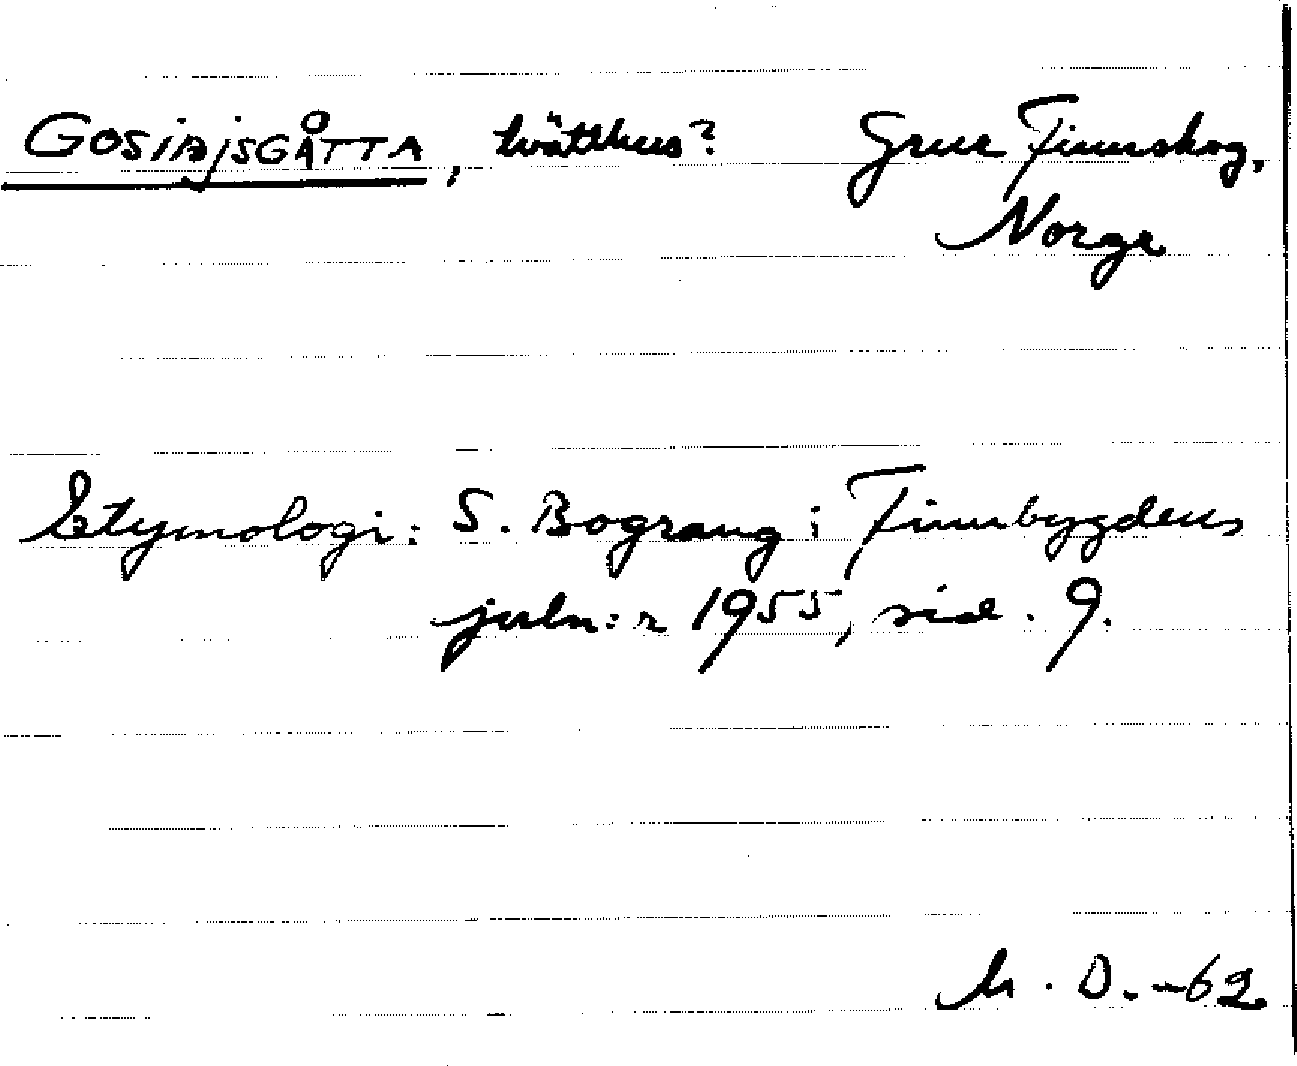 GOSIAJSGÅTTA, tvätthus? Grue Finnskog,
Norge
Etymologi: S. Bograng i Finnbygdens
juln:r 1955, sid. 9.
M. D. -62